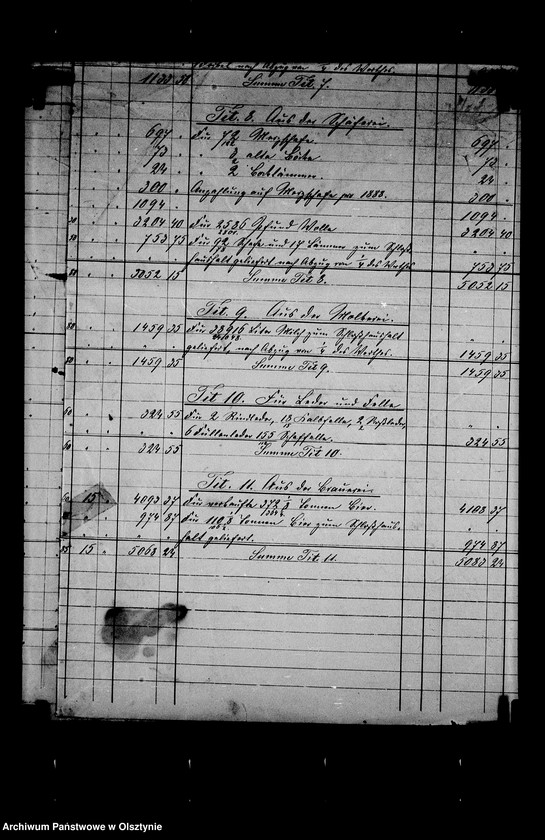 nach Abzug von ¼ des Werthes.
1133 Summe Tit. 7.
Tit. 8. Aus der Schäferei.
697 Für 72 Merzschafe 697
73 " 8 alte Böcke 73
24 " 2 Bocklämmer 24
300 Anzahlung auf Merzschafe pro 1888. 300
1094 1094
3204 40 Für 2586 Pfund Wolle 3204 40
753 75 Für 92 Schafe und 17 Lämmer zum Schloß-
haushalt geliefert nach Abzug von ¼ des Werthes 753 75
5052 15 Summe Tit. 8. 5052 15
Tit. 9. Aus der Molkerei.
1459 35 Für 38916 Liter Milch zum Schloßhaushalt
geliefert, nach Abzug von ¼ des Werthes. 1459 35
1459 35 Summe Tit. 9. 1459 35
Tit 10. Für Leder und Felle
60 324 55 Für 2 Rindleder, 18 Kalbfelle, 2 Roßleder,
6 Füllenleder 155 Schaffelle. 324 55
60 324 55 Summe Tit 10.
Tit. 11. Aus der Brauerei.
15 4093 37 Für verkaufte 372 Tonnen Bier. 4108 37
974 87 Für 110 Tonnen Bier zum Schloßhaus-
halt geliefert. 974 87
15 5068 24 Summe Tit. 11. 5083 24
Archiwum Państwowe w Olsztynie